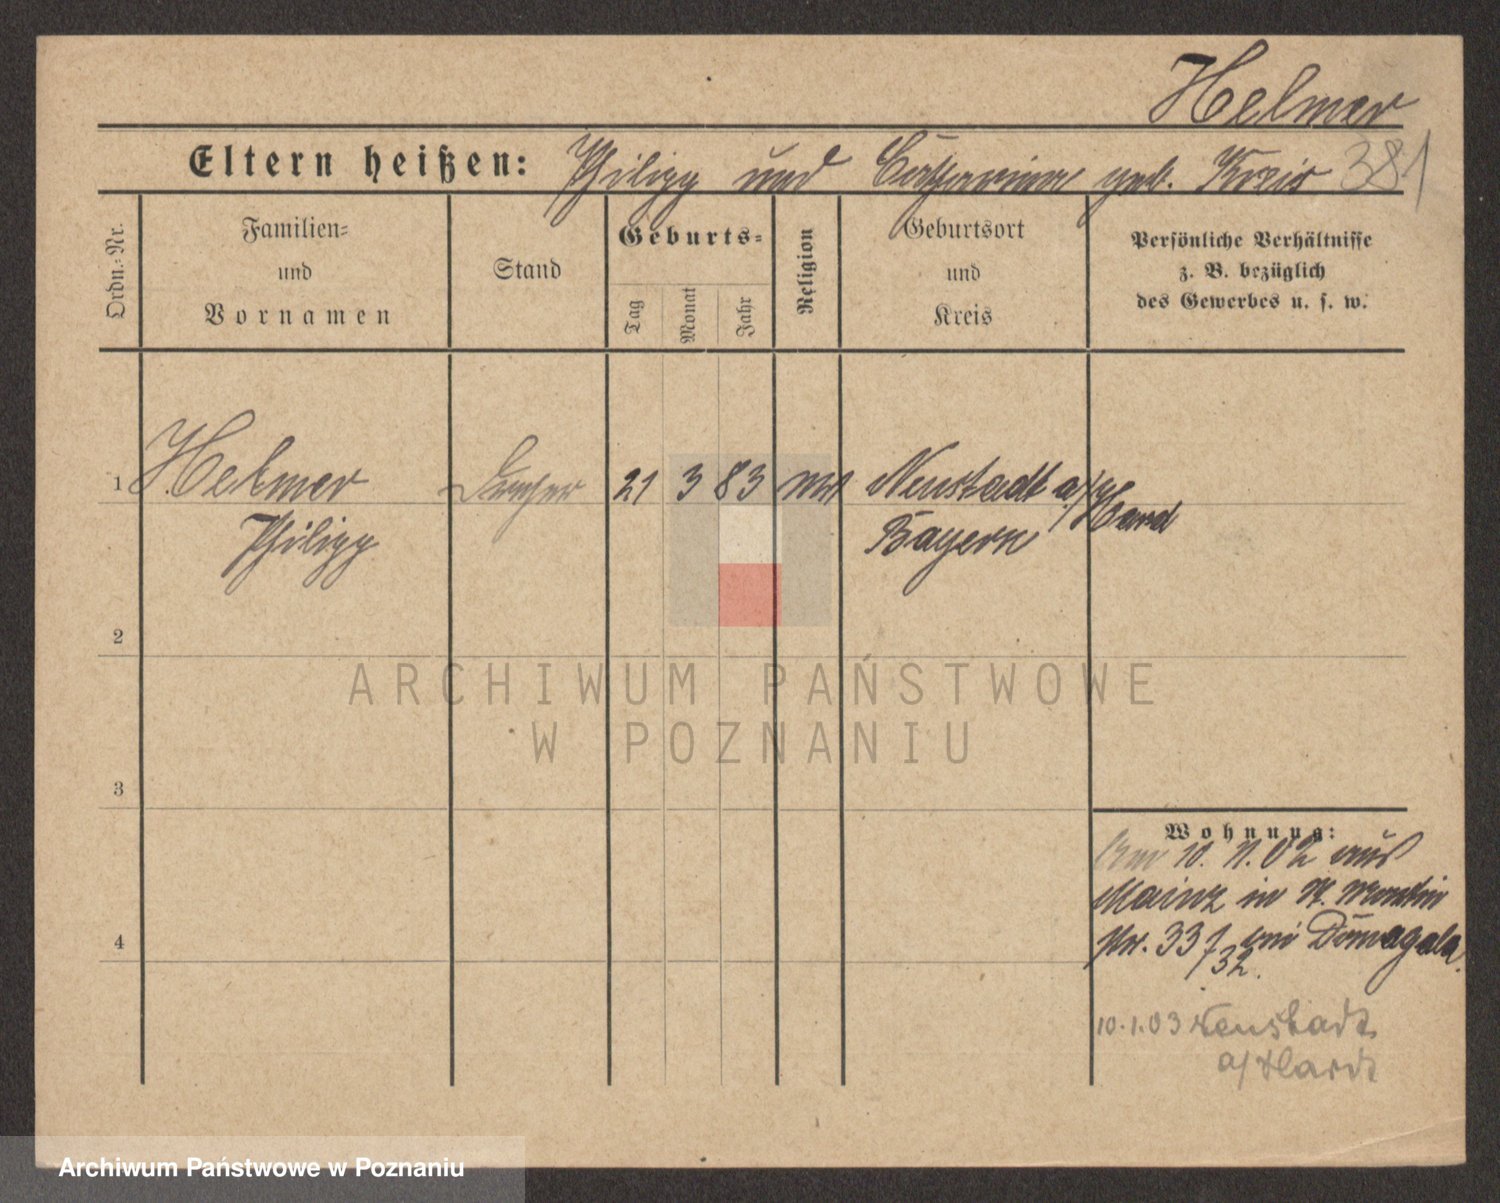 Helmer
Eltern heißen: Philipp und Catharina geb. Kreis 381
Ordn.-Nr.
Familien-
und
Vornamen
Stand
Geburts-
Tag
Monat
Jahr
Religion
Geburtsort
und
Kreis
Persönliche Verhältnisse
z. B. bezüglich
des Gewerbes u. s. w.
1 Helmer 21 3 83 Neustadt a/Hard
Philipp Bayern
2
3
4
Wohnung:
10. 11. 02 aus
Mainz in St. Martin
Nr. 33 bei Domagala
/32.
10.1.03 Neustadt
a/Hardt
ARCHIWUM PAŃSTWOWE
W POZNANIU
Archiwum Państwowe w Poznaniu